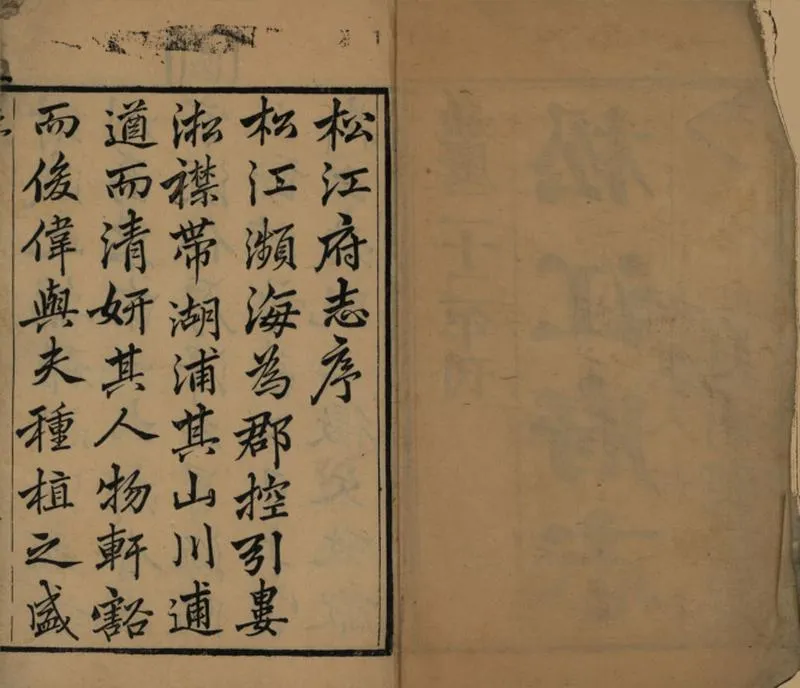 松江府志序
松江瀕海為郡控引婁
淞襟带湖浦其山川逋
道而清妍其人物軒豁
而俊偉與夫種植之盛